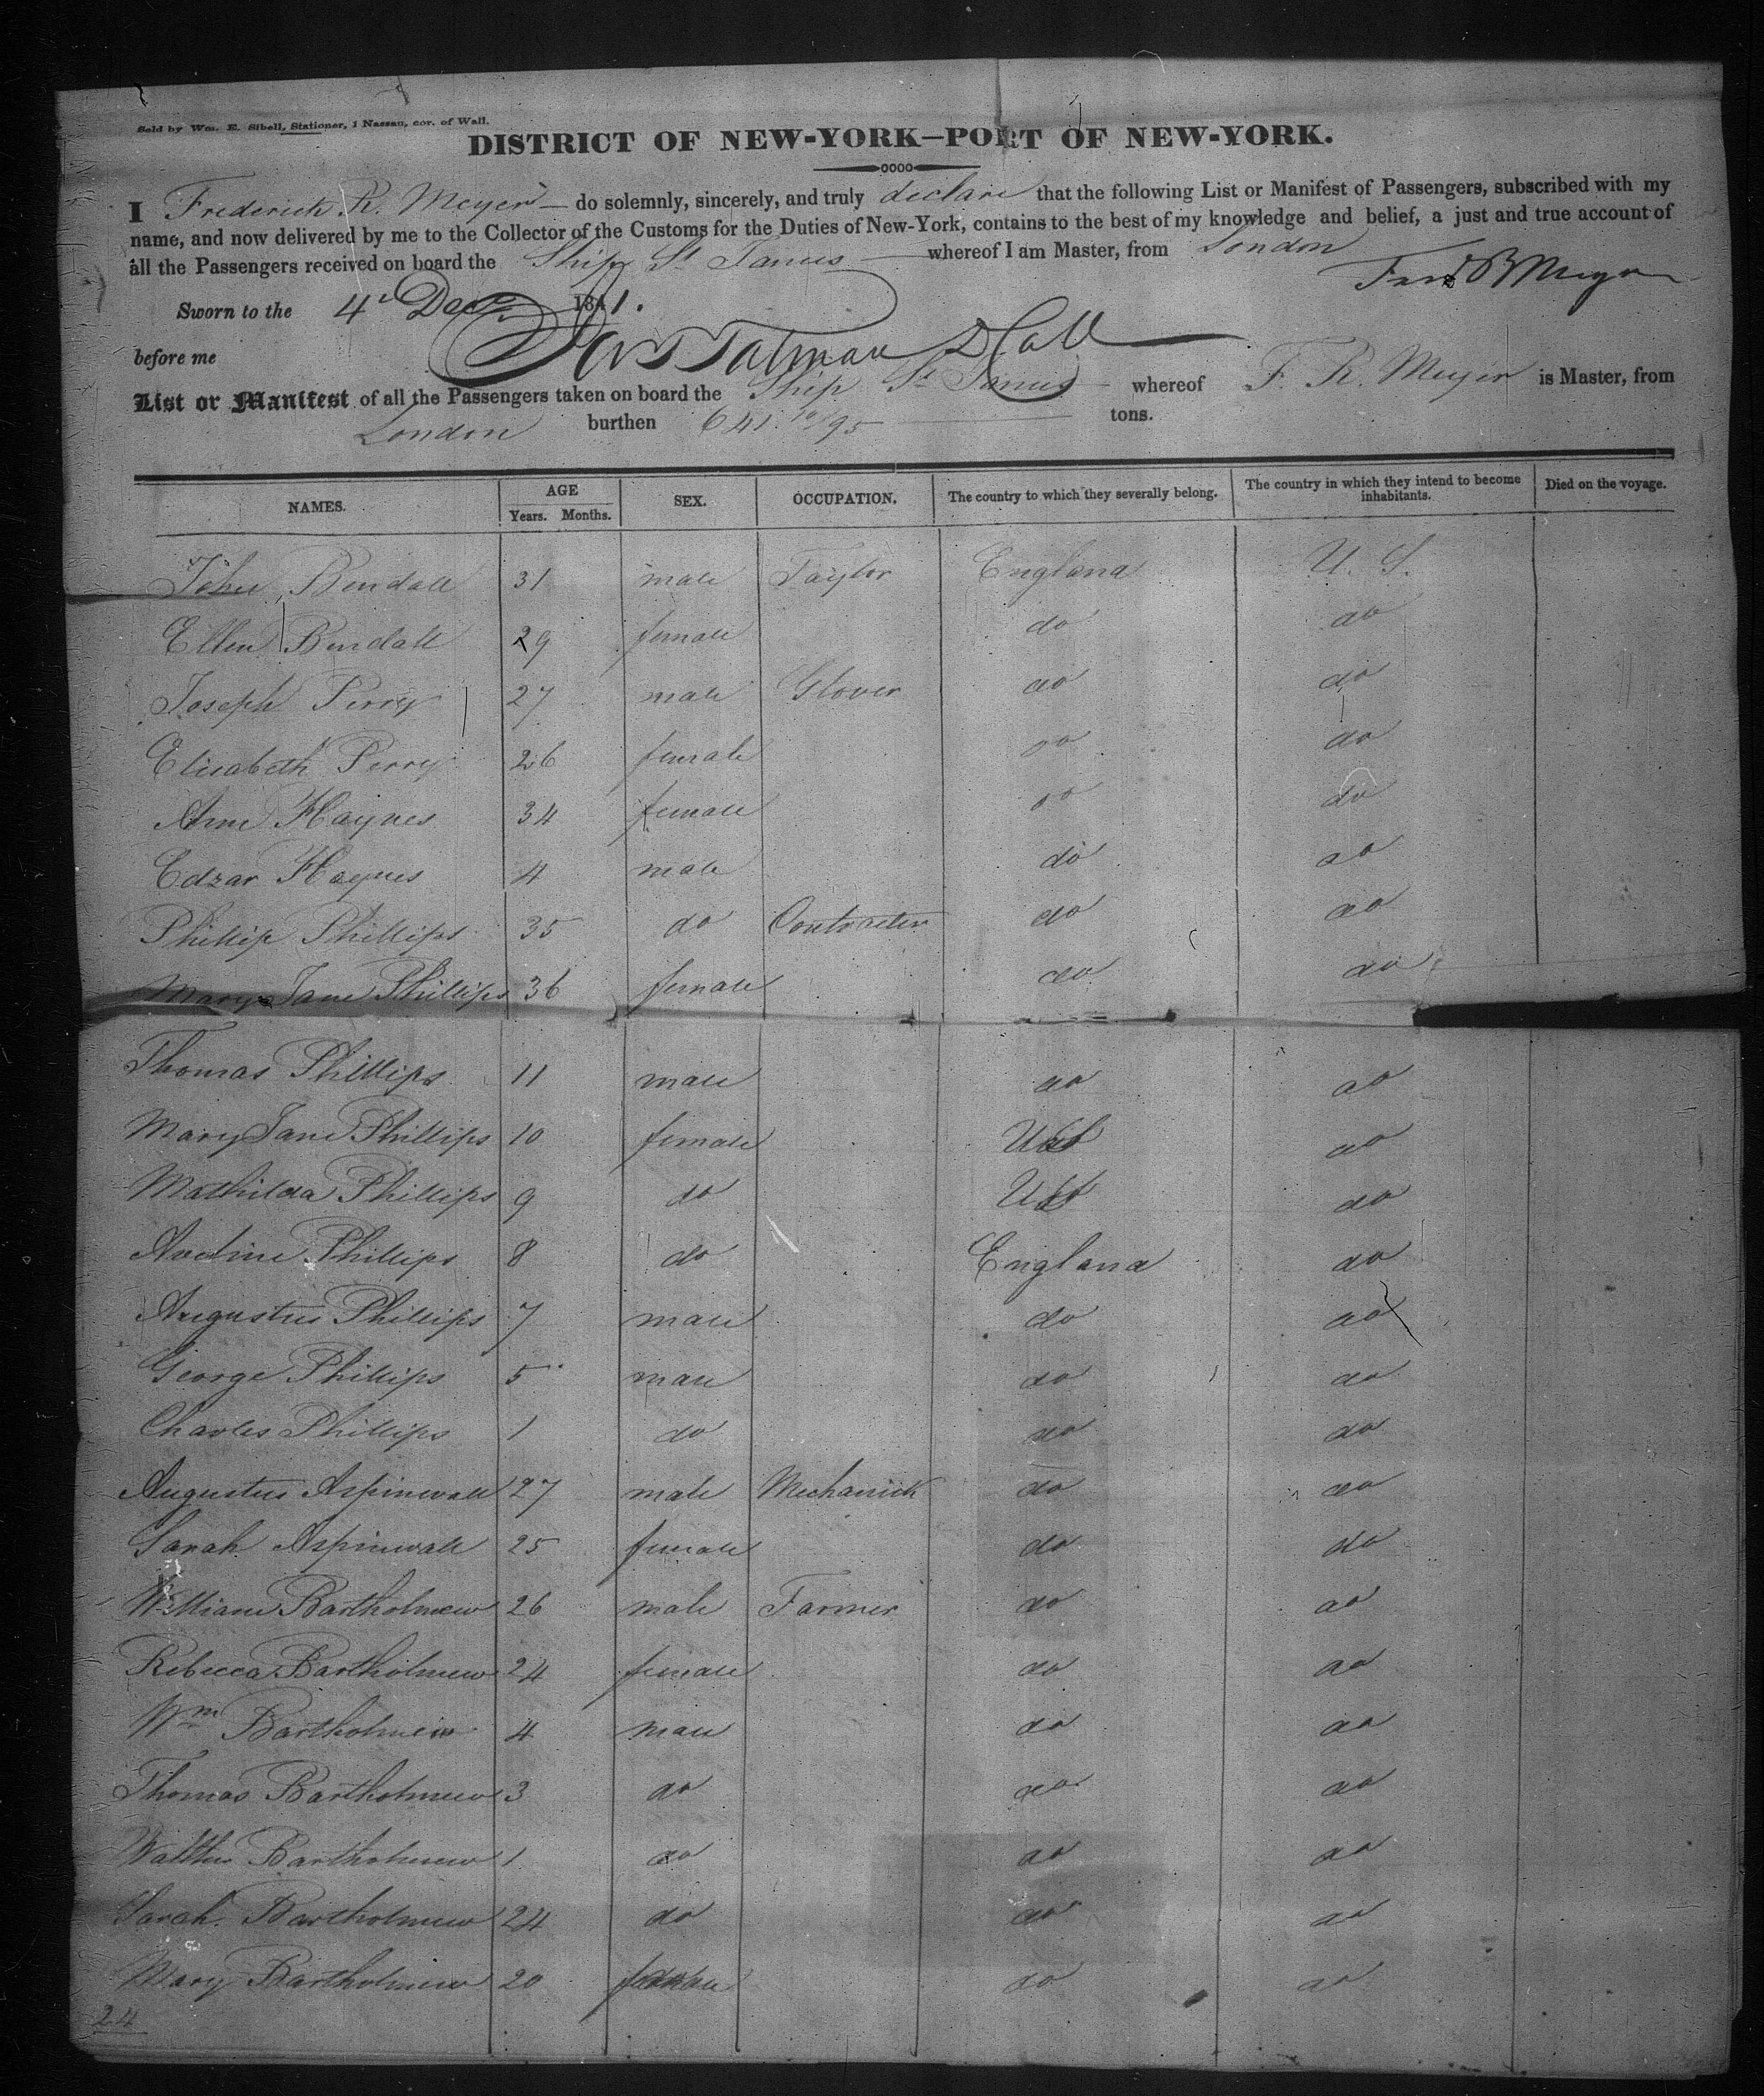 Sold by Wm. E. Sibell, Stationer, 1 Nassau, cor. of Wall.
DISTRICT OF NEW-YORK—PORT OF NEW-YORK.
I Frederick R. Meyer — do solemnly, sincerely, and truly declare that the following List or Manifest of Passengers, subscribed with my
name, and now delivered by me to the Collector of the Customs for the Duties of New-York, contains to the best of my knowledge and belief, a just and true account of
all the Passengers received on board the Ship St James whereof I am Master, from London
Sworn to the 4th Decr 1841.
before me
List or Manifest of all the Passengers taken on board the Ship St James whereof F. R. Meyer is Master, from
London burthen 641 10/95 tons.
NAMES. AGE Years. Months. SEX. OCCUPATION. The country to which they severally belong. The country in which they intend to become inhabitants. Died on the voyage.
John Bendall 31 male Taylor England U. S.
Ellen Bendall 29 female do do
Joseph Perry 27 male Glover do do
Elisabeth Perry 26 female do do
Ann Haynes 34 female do do
Edzar Haynes 4 male do do
Phillip Phillips 35 do Contracter do do
Mary Jane Phillips 36 female do do
Thomas Phillips 11 male do do
Mary Jane Phillips 10 female do
Mathilda Phillips 9 do do
Phillips 8 do England do
Augustus Phillips 7 male do do
George Phillips 5 male do do
Charles Phillips 1 do do do
Augustus Aspinwall 27 male Mechanick do do
Sarah Aspinwall 25 female do do
William Bartholmew 26 male Farmer do do
Rebecca Bartholmew 24 female do do
Wm Bartholmew 4 male do do
Thomas Bartholmew 3 do do do
Walther Bartholmew 1 do do do
Sarah Bartholmew 24 do do do
Mary Bartholmew 20 female do do
24